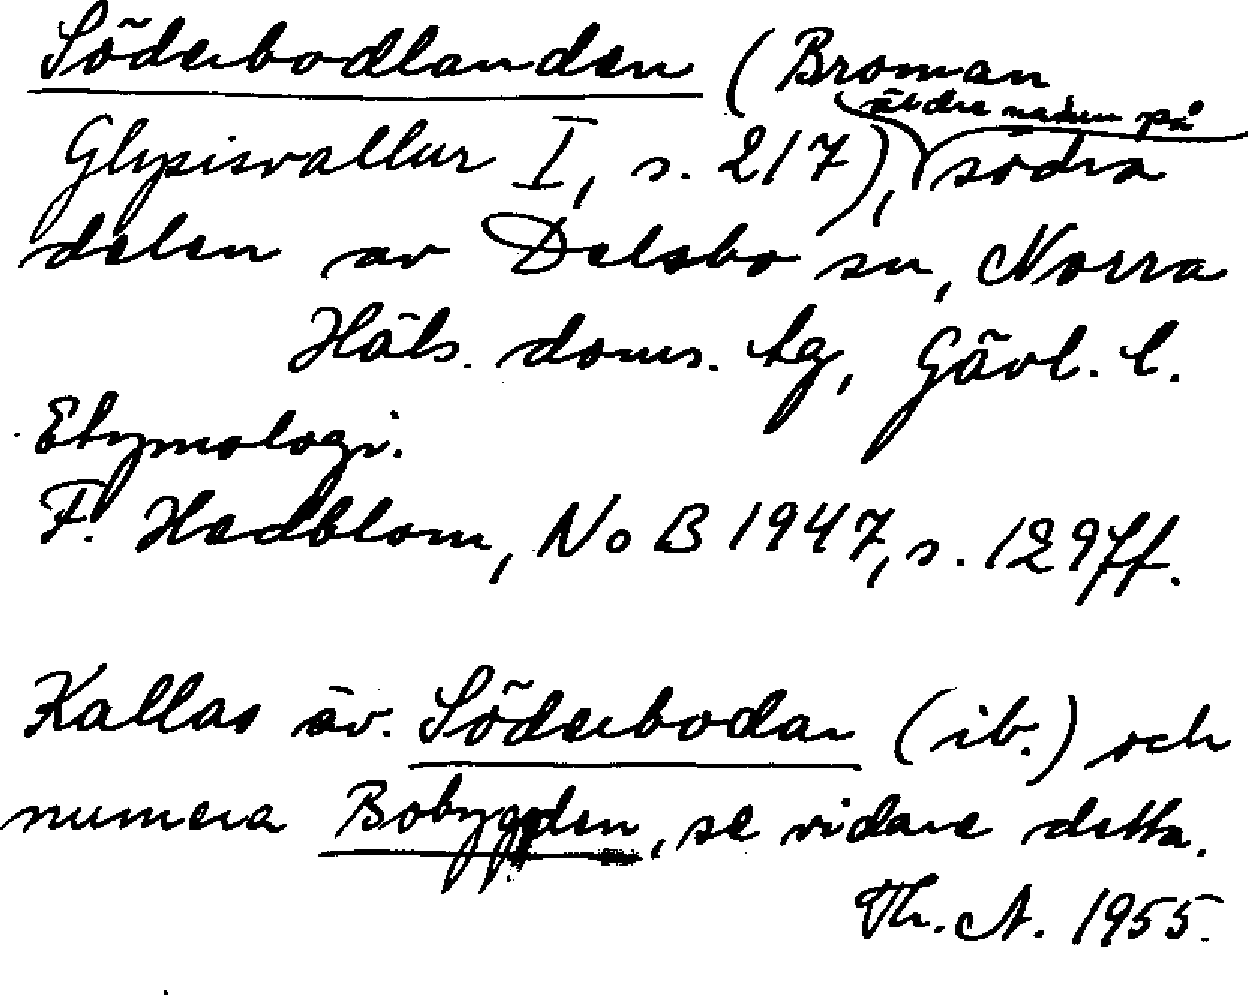 Söderbodlanden (Broman
äldre namn på
Glysisvallur I, s. 217), södra
delen av Delsbo sn, Norra
Häls. doms. tg, Gävl. l.
Etymologi.
F. Hedblom, NoB 1947, s. 129ff.
Kallas äv. Söderbodar (ib.) och
numera Bobygden, se vidare detta.
Th. A. 1955.